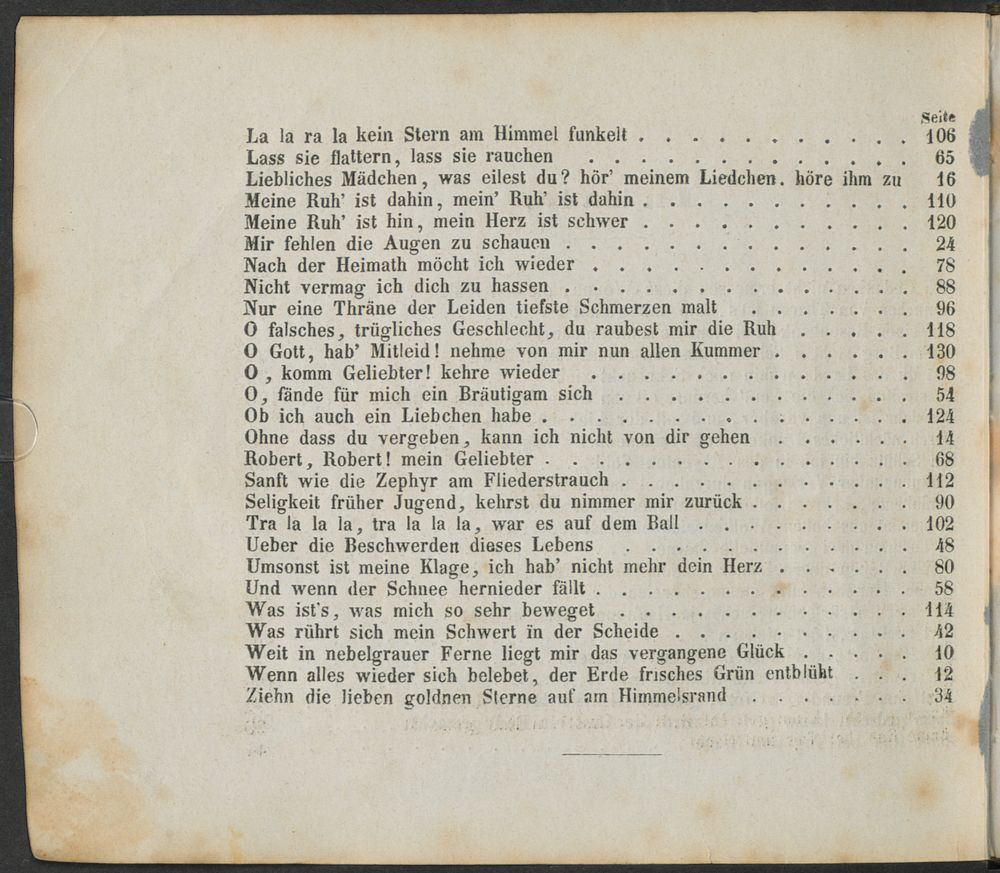 Seite
La la ra la kein Stern am Himmel funkelt . . . . . . . . . . . 106
Lass sie flattern, lass sie rauchen . . . . . . . . . . . . . 65
Liebliches Mädchen, was eilest du? hör' meinem Liedchen. höre ihm zu 16
Meine Ruh' ist dahin, mein' Ruh' ist dahin . . . . . . . . . . . 110
Meine Ruh' ist hin, mein Herz ist schwer . . . . . . . . . . . 120
Mir fehlen die Augen zu schauen . . . . . . . . . . . . . . 24
Nach der Heimath möcht ich wieder . . . . . . . . . . . . . 78
Nicht vermag ich dich zu hassen . . . . . . . . . . . . . . 88
Nur eine Thräne der Leiden tiefste Schmerzen malt . . . . . . . 96
O falsches, trügliches Geschlecht, du raubest mir die Ruh . . . . . 118
O Gott, hab' Mitleid! nehme von mir nun allen Kummer . . . . . . 130
O, komm Geliebter! kehre wieder . . . . . . . . . . . . . 98
O, fände für mich ein Bräutigam sich . . . . . . . . . . . . 54
Ob ich auch ein Liebchen habe . . . . . . . . . . . . . . . 124
Ohne dass du vergeben, kann ich nicht von dir gehen . . . . . . 14
Robert, Robert! mein Geliebter . . . . . . . . . . . . . . . 68
Sanft wie die Zephyr am Fliederstrauch . . . . . . . . . . . . 112
Seligkeit früher Jugend, kehrst du nimmer mir zurück . . . . . . . 90
Tra la la la, tra la la la, war es auf dem Ball . . . . . . . . . 102
Ueber die Beschwerden dieses Lebens . . . . . . . . . . . . 48
Umsonst ist meine Klage, ich hab' nicht mehr dein Herz . . . . . . 80
Und wenn der Schnee hernieder fällt . . . . . . . . . . . . . 58
Was ist's, was mich so sehr beweget . . . . . . . . . . . . 114
Was rührt sich mein Schwert in der Scheide . . . . . . . . . . 42
Weit in nebelgrauer Ferne liegt mir das vergangene Glück . . . . . 10
Wenn alles wieder sich belebet, der Erde frisches Grün entblüht . . . 12
Ziehn die lieben goldnen Sterne auf am Himmelsrand . . . . . . . 34